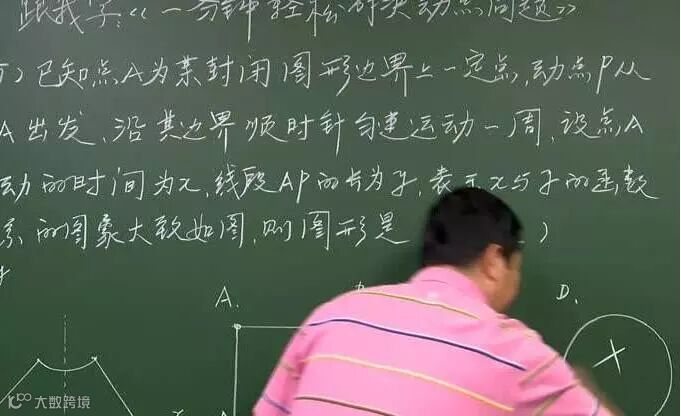 跟我学:《一分钟轻松解决动点问题》
)已知点A为某封闭图形边界上一定点,动点P从
A出发,沿其边界顺时针匀速运动一周,设点A
动的时间为x,线段AP的长为y,表示x与y的函数
系的图象大致如图,则图形是 )
y
A. D.
x
大数跨境